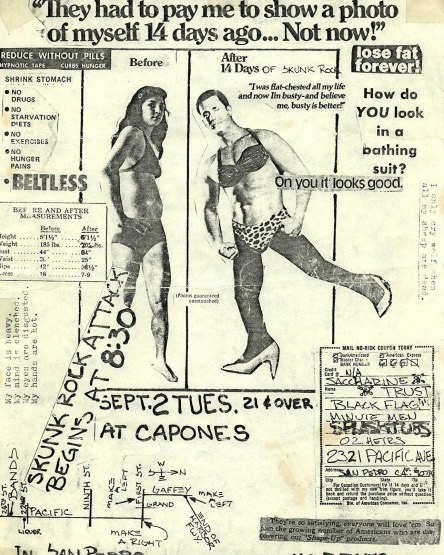 “They had to pay me to show a photo
of myself 14 days ago... Not now!”
REDUCE WITHOUT PILLS
HYPNOTIC TAPE CURBS HUNGER
SHRINK STOMACH
• NO
DRUGS
• NO
STARVATION
DIETS
• NO
EXERCISES
• NO
HUNGER
PAINS
• BELTLESS
BEFORE AND AFTER
MEASUREMENTS
Before After
Height
Weight 185 lbs.
Bust 44"
Waist 25"
Hips 12"
18 7-9
My face is heavy.
My mind is clenched.
My eyes are disgusted.
My hands are hot.
Before
After
14 Days OF SKUNK ROCK
"I was flat-chested all my life
and now I'm busty-and believe
me, busty is better!"
lose fat
forever!
How do
YOU look
in a
bathing
suit?
On you it looks good.
I only cry when
all my sheep are dead.
(Photos guaranteed
unretouched)
SKUNK ROCK ATTACK
BEGINS AT 8:30
SEPT. 2 TUES. 21 & OVER
AT CAPONES
MAIL NO-RISK COUPON TODAY
BankAmericard American Express
Master Charge
BANK NUMBER
Credit
Card # N/A
SACCHARINE
TRUST
BLACK FLAG
MINUTE MEN
OZ HEIRS
2321 PACIFIC AVE
Address
SAN PEDRO CA.
Div. of American Consumer, Inc.
BANDS
26TH ST.
22ND ST.
PACIFIC
LIQUOR
NINTH ST.
MAKE
LEFT
FIRST ST.
W
S N
GAFFEY
GRAND
MAKE
LEFT
MAKE
A RIGHT
END OF
HARBOR
FWY.
They're so satisfying, everyone will love 'em. So
join the growing number of Americans who are dis-
covering our "Shape-Up" products.
IN SAN PEDRO